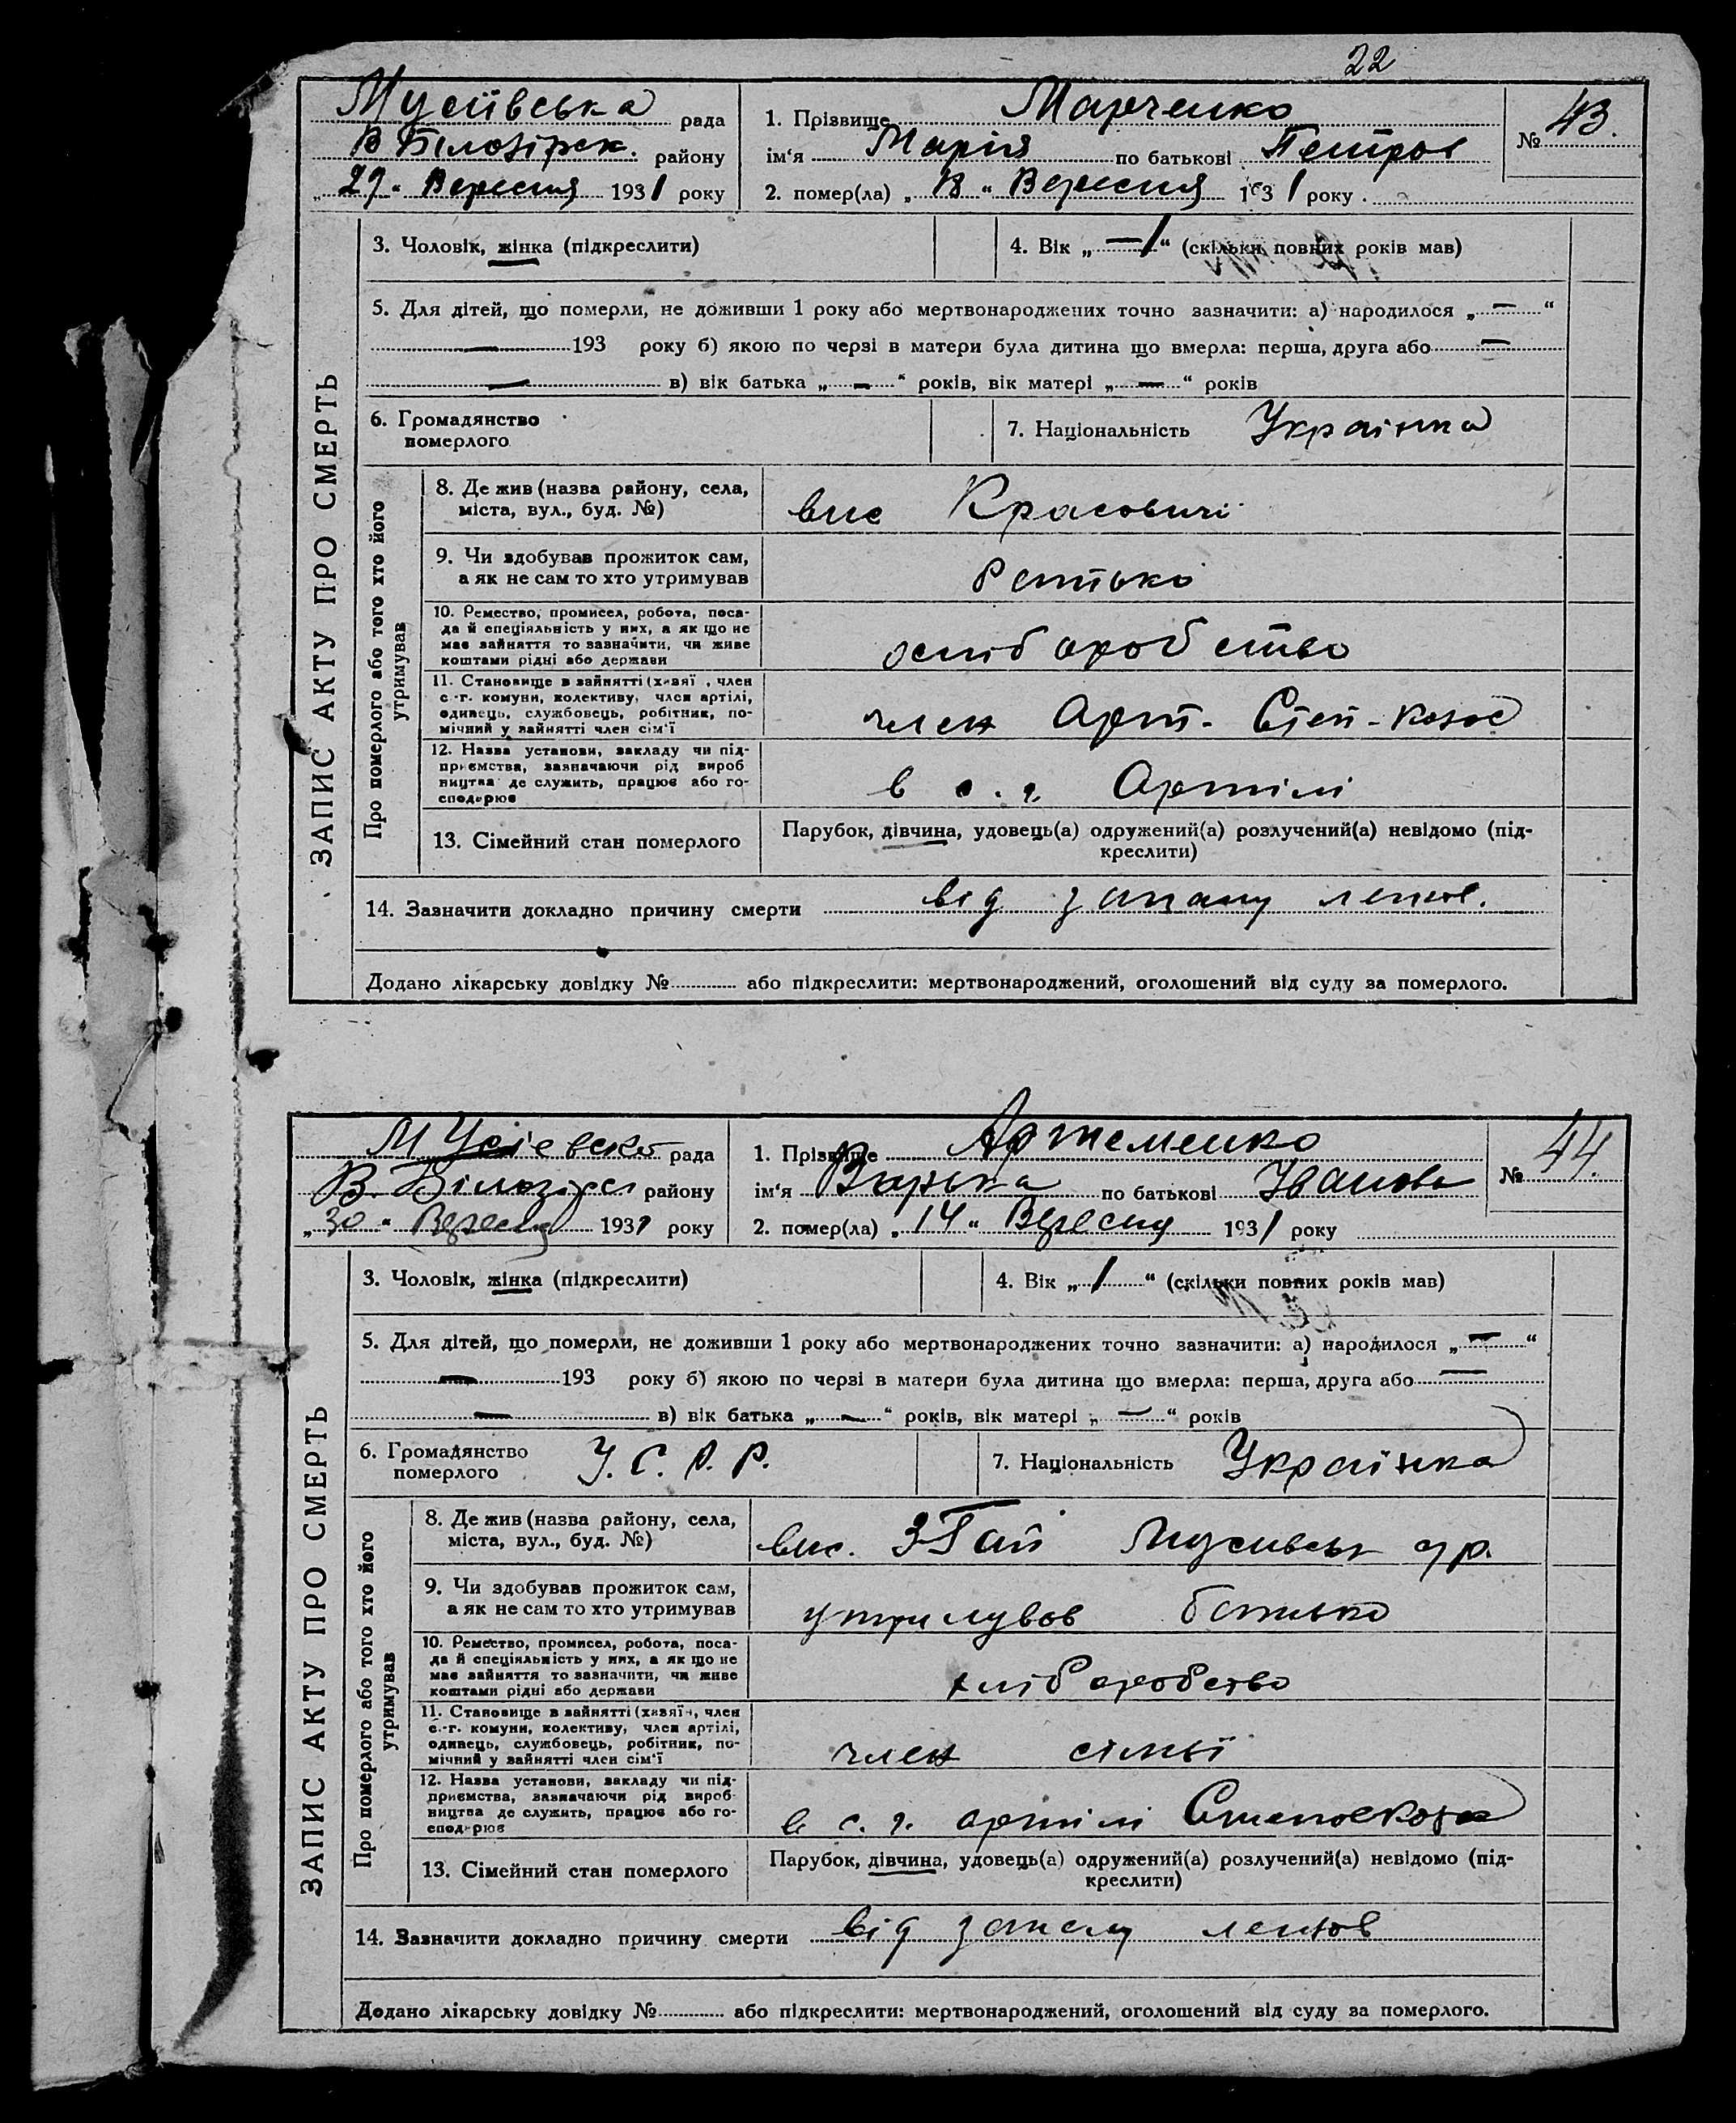 22
Мусіївська рада
В Білозірск. району
„29“ Вересня 1931 року
1. Прізвище Марченко
ім'я Марія по батькові Петров
2. помер(ла) „18“ Вересня 1931 року
№ 43.
3. Чоловік, жінка (підкреслити)
4. Вік „—1“ (скільки повних років мав)
5. Для дітей, що померли, не доживши 1 року або мертвонароджених точно зазначити: а) народилося „—“
— 193 року б) якою по черзі в матери була дитина що вмерла: перша, друга або —
— в) вік батька „—“ років, вік матері „—“ років
6. Громадянство
померлого
7. Національність Українка
ЗАПИС АКТУ ПРО СМЕРТЬ
Про померлого або того хто його
утримував
8. Де жив (назва району, села,
міста, вул., буд. №)
вис Красовичі
9. Чи здобував прожиток сам,
а як не сам то хто утримував
батько
10. Ремество, промисел, робота, поса-
да й спеціяльність у них, а як що не
має зайняття то зазначити, чи живе
коштами рідні або держави
хліборобство
11. Становище в зайнятті (хазяї, член
с.-г. комуни, колективу, член артілі,
одинець, службовець, робітник, по-
мічний у зайнятті член сім'ї
член Арт. Степ-
12. Назва установи, закладу чи під-
приємства, зазначаючи рід вироб
ництва де служить, працює або го-
сподарює
в с. г. Артілі
13. Сімейний стан померлого
Парубок, дівчина, удовець(а) одружений(а) розлучений(а) невідомо (під-
креслити)
14. Зазначити докладно причину смерти від запалу легков.
Додано лікарську довідку № або підкреслити: мертвонароджений, оголошений від суду за померлого.
Мусіевско рада
В. Білозірс району
„30“ Вересня 1931 року
1. Прізвище Артеменко
ім'я Варька по батькові Іванова
2. помер(ла) „14“ Вересня 1931 року
№ 44.
3. Чоловік, жінка (підкреслити)
4. Вік „1“ (скільки повних років мав)
5. Для дітей, що померли, не доживши 1 року або мертвонароджених точно зазначити: а) народилося „—“
— 193 року б) якою по черзі в матери була дитина що вмерла: перша, друга або —
— в) вік батька „—“ років, вік матері „—“ років
6. Громадянство
померлого
У. С. Р. Р.
7. Національність Українка
ЗАПИС АКТУ ПРО СМЕРТЬ
Про померлого або того хто його
утримував
8. Де жив (назва району, села,
міста, вул., буд. №)
вис. 3-Гай Мусиівськ
9. Чи здобував прожиток сам,
а як не сам то хто утримував
утримував батько
10. Ремество, промисел, робота, поса-
да й спеціяльність у них, а як що не
має зайняття то зазначити, чи живе
коштами рідні або держави
хліборобство
11. Становище в зайнятті (хазяїн, член
с.-г. комуни, колективу, член артілі,
одинець, службовець, робітник, по-
мічний у зайнятті член сім'ї
член сімьї
12. Назва установи, закладу чи під-
приємства, зазначаючи рід вироб-
ництва де служить, працює або го-
сподарює
в с. г. артілі
13. Сімейний стан померлого
Парубок, дівчина, удовець(а) одружений(а) розлучений(а) невідомо (під-
креслити)
14. Зазначити докладно причину смерти від запалу легков
Додано лікарську довідку № або підкреслити: мертвонароджений, оголошений від суду за померлого.